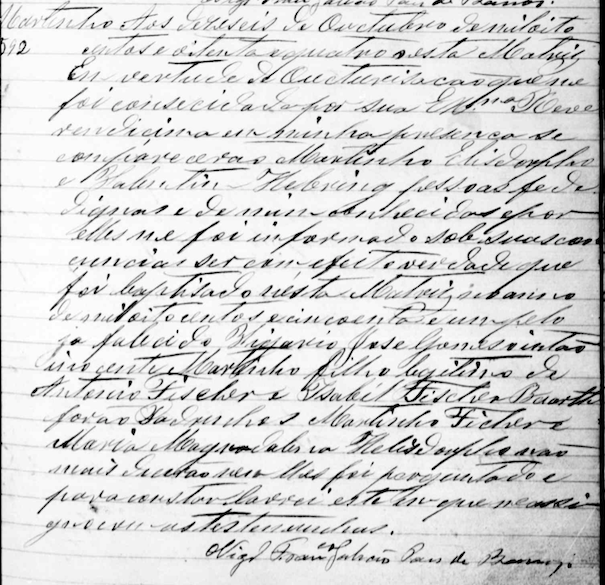 Martinho Aos deseseis de Outubro de mil oito
592 centos e oitenta e quatro nesta Matriz
Em vertude de Outhorisacao que me
foi consecidada por sua Exma Reve
rendicima em minha presença se
comparecerão Martinho Elisdorpho
e Valentin Hebring pessoas fede
dignas e de mim conhecidas e por
elles me foi informado sob suas con
ciencias ser com efeito verdade que
foi baptisado nésta Matriz no anno
de mil oito centos e cincoenta e um pelo
já falecido Vigario José Gomes
innocente Martinho filho legitimo de
Antonio Fischer e Isabel Fischer
forão Padrinhos Martinho Ficher e
Maria Magnadalena não
mais disserão nem lles foi perguntado e
para constar lavrei este em que
as testemunhas.
Vigr. Franco